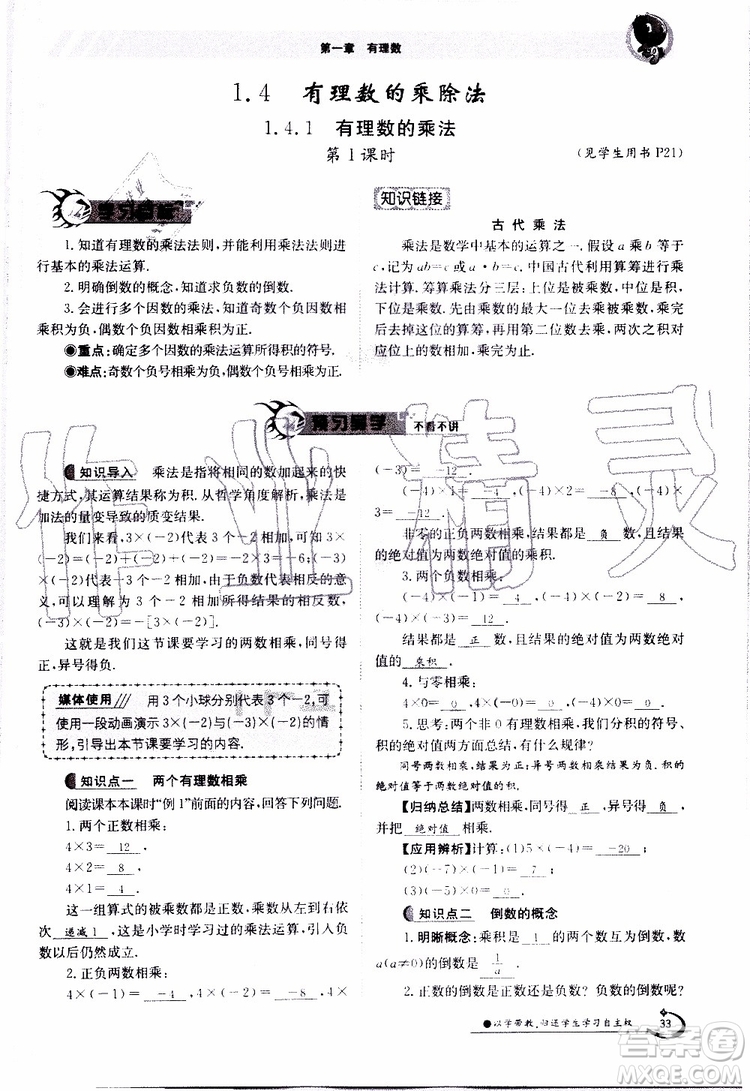 第一章 有理数
1.4 有理数的乘除法
1.4.1 有理数的乘法
第1课时
(见学生用书 P21)
学习目标
1. 知道有理数的乘法法则,并能用有理数的乘法法则进
行基本的乘法运算.
2. 明确倒数的概念,知道求负数的倒数.
3. 会进行多个因数的乘法,知道奇数个负因数相乘积
乘积为负,偶数个负因数乘积为正.
◉重点:确定多个因数的乘法运算所得积的符号.
◉难点:奇数个负号相乘为负,偶数个负号相乘为正.
知识链接
古代乘法
乘法是数学中基本的运算之一. 假设 a 乘 b 等于
c,记为 ab=c 或 a·b=c. 中国古代利用算筹进行乘
法计算. 筹算乘法分三层:上位是被乘数,中位是积,
下位是乘数. 先用乘数的最大一位去乘被乘数,乘完
后去掉这位的算筹,再用第二位数去乘,两次之积对
应位上的数相加,乘完为止.
预习导学 不看不讲
知识导入 乘法是指将相同的数加起来的快
捷方式,其运算结果称为积. 从哲学角度解析,乘法是
加法的量变导致的质变结果.
我们来看,3×(−2)代表 3 个−2 相加,可知 3×
(−2)=(−2)+(−2)+(−2)=−6. 由
(−2)代表−3 个−2 相加,由于负数代表相反的意
义,可以理解为 3 个−2 相加所得结果的相反数,
(−3)×(−2)=−[3×(−2)].
这就是我们这节课要学习的两数相乘,同号得
正,异号得负.
媒体使用 用 3 个小球分别代表 3 个−2,可
使用一段动画演示 3×(−2)与(−3)×(−2)的情
形,引导出本节课要学习的内容.
知识点一 两个有理数相乘
阅读课本本课时“例 1”前面的内容,回答下列问题.
1. 两个正数相乘:
4×3= 12 ,
4×2= 8 ,
4×1= 4 .
这一组算式的被乘数都是正数,乘数从左到右依
次 递减1 ,这是小学时学习过的乘法运算,引入负
数以后仍然成立.
2. 正负两数相乘:
4×(−1)= −4 ,4×(−2)= −8 ,4×
(−3)= −12 .
(−4)×1= −4 ,(−4)×2= −8 ,(−4)×
3= −12 .
非零的正负两数相乘,结果都是 负 数,结果
的绝对值为两数绝对值的乘积.
3. 两个负数相乘:
(−4)×(−1)= 4 ,(−4)×(−2)= 8 ,
(−4)×(−3)= 12 .
结果都是 正 数,结果的绝对值为两数绝对
值的 乘积 .
4. 与零相乘:
4×0= 0 ,(−4)×0= 0 .
5. 思考:两个非 0 有理数相乘,我们从积的符号
和绝对值两方面总结,有什么规律?
同号两数相乘,积为正;异号两数相乘,积为负. 积的
绝对值等于两数绝对值的积.
【归纳总结】两数相乘,同号得 正 ,异号得 负 ,
并把 绝对值 相乘.
【应用辨析】计算:(1)5×(−4)= −20 ;
(2)(−7)×(−1)= 7 ;
(3)(−5)×0= 0 .
知识点二 倒数的概念
1. 明晰概念:乘积是 1 的两个数互为倒数,数
a(a≠0)的倒数是 1/a .
2. 正数的倒数是正数还是负数? 负数的倒数呢?
◉以学带教,归还学生学习自主权 33
作业精灵
答案圈